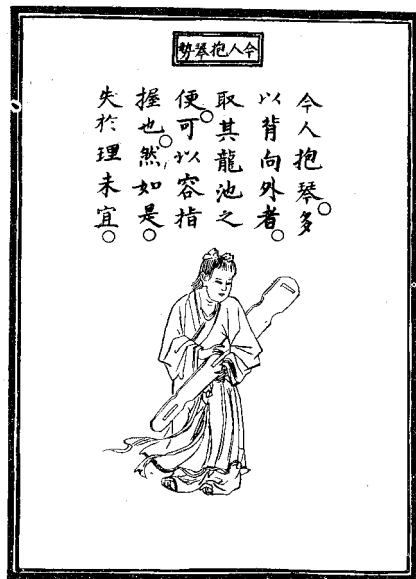 今人抱琴勢
今人抱琴。多
以背向外者。
取其龍池之
便。可以容指
握也。然如是。
失於理未宜。